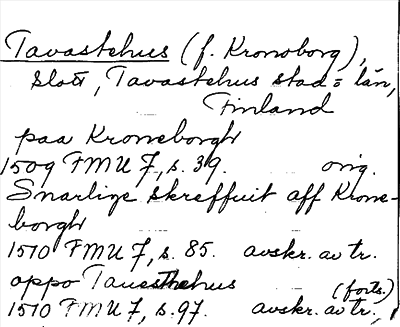 Tavastehus (f. Kronoborg),
slott, Tavastehus stad o län,
Finland
paa Kroneborgh
1509 FMU 7, s. 39. orig.
Snarlige skreffuit aff Krone-
borgh
1510 FMU 7, s. 85. avskr. av tr.
oppo Tauesthehus
(forts.)
1510 FMU 7, s. 97. avskr. av tr.,